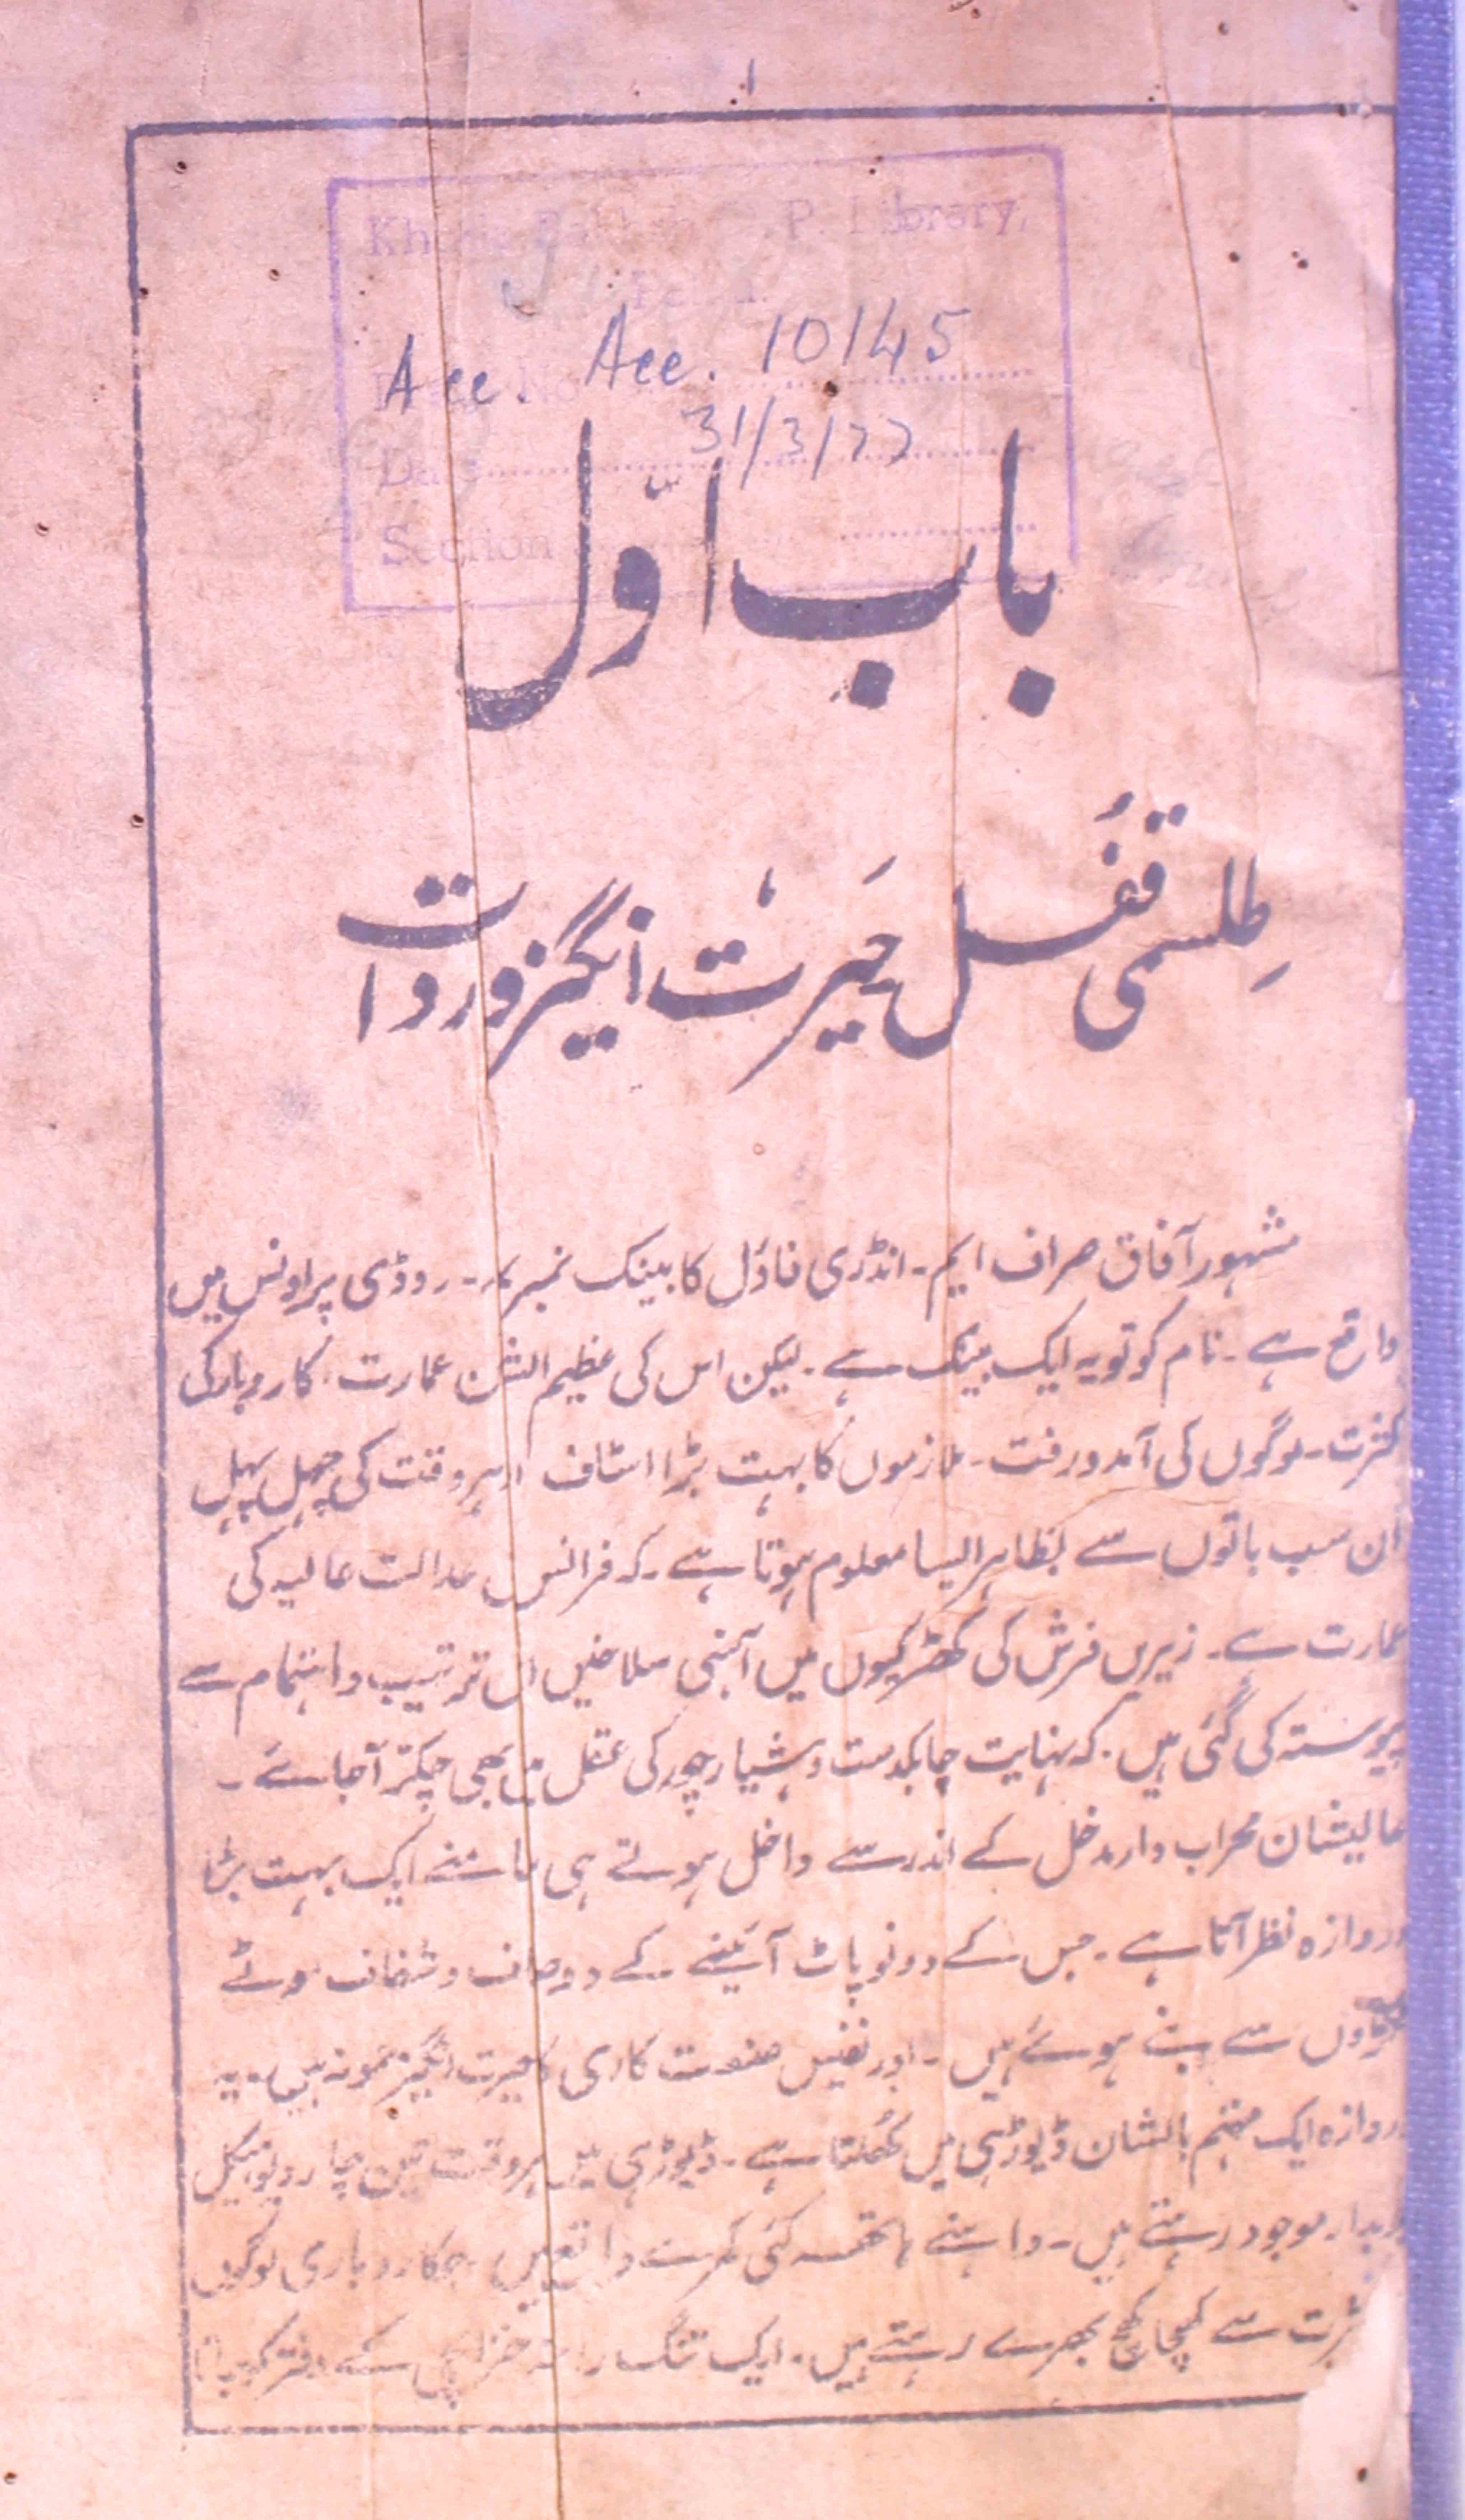 ۱
Library,
Acc. Acc. 10145
Date 31/3/77
Section
باب اوّل
طلسمی قفل حیرت انگیز وردات
مشہور آفاق صراف ایم۔ انڈری فاؤل کا بینک نمبر ۔ روڈی پراونس میں
واقع ہے۔ نام کو تو یہ ایک بینک ہے۔ لیکن اس کی عظیم الشن عمارت۔ کاروبار کی
کثرت۔ لوگوں کی آمدورفت۔ ملازموں کا بہت بڑا اسٹاف اور ہر وقت کی چہل پہل
ان سب باتوں سے بظاہر ایسا معلوم ہوتا ہے۔ کہ فرانس عدالت عالیہ کی
عمارت ہے۔ زیریں فرش کی کھڑکیوں میں آہنی سلاخیں اس ترتیب و اہتمام سے
پیوستہ کی گئی ہیں۔ کہ نہایت چابکدست و ہشیار چور کی عقل میں بھی چکر آجائے۔
عالیشان محراب دار مدخل کے اندر سے داخل ہوتے ہی سامنے ایک بہت بڑا
دروازہ نظر آتا ہے۔ جس کے دونو پاٹ آئینے کے دو صاف و شفاف موٹے
سے بنے ہوئے ہیں۔ اور نفیس صنعت کاری کا حیرت انگیز نمونہ ہیں۔ یہ
دروازہ ایک مہتم بالشان ڈیوڑہی میں کُھلتا ہے۔ ڈیوڑہی میں ہر وقت تین چار
موجود رہتے ہیں۔ داہنے ہاتھ کئی کمرے واقع ہیں۔ جو کاروباری لوگوں
کثرت سے کھچا کھچ بھرے رہتے ہیں۔ ایک تنگ راستہ خزانچی کے دفتر کو جاتا